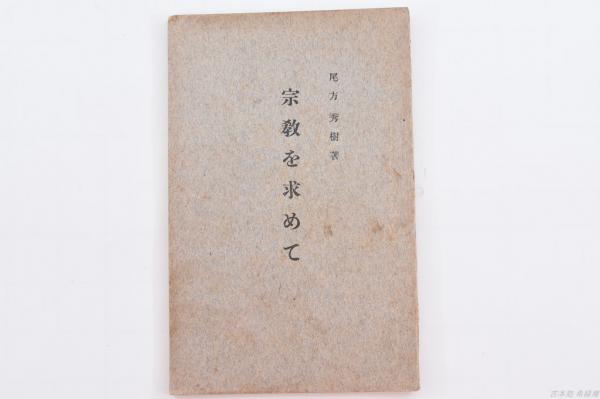 尾方 秀樹 著
宗教を求めて